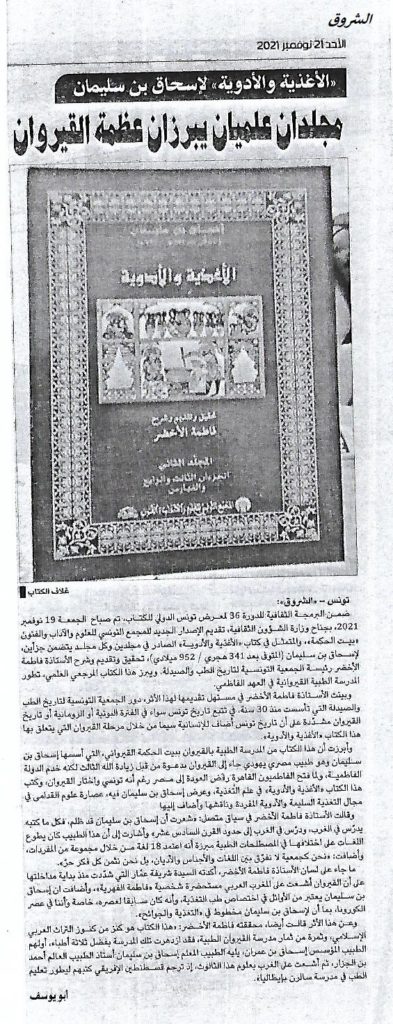 الشروق
الأحد 21 نوفمبر 2021
«الأغذية والأدوية» لإسحاق بن سليمان
مجلدان علميان يبرزان عظمة القيروان
إسحاق بن سليمان
الأغذية والأدوية
تحقيق وتقديم وشرح
فاطمة الأخضر
المجلد الثاني
الجزءان الثالث والرابع
والفهارس
غلاف الكتاب
تونس – «الشروق»:
ضمن البرمجة الثقافية للدورة 36 لمعرض تونس الدولي للكتاب، تم صباح الجمعة 19 نوفمبر
2021، بجناح وزارة الشؤون الثقافية، تقديم الإصدار الجديد للمجمع التونسي للعلوم والآداب والفنون
«بيت الحكمة»، والمتمثل في كتاب «الأغذية والأدوية» الصادر في مجلدين وكل مجلد يتضمن جزأين،
لإسحاق بن سليمان (المتوفى بعد 341 هجري / 952 ميلادي)، تحقيق وتقديم وشرح الأستاذة فاطمة
الأخضر رئيسة الجمعية التونسية لتاريخ الطب والصيدلة. ويبرز هذا الكتاب المرجعي العلمي، تطور
المدرسة الطبية القيروانية في العهد الفاطمي.
وبينت الأستاذة فاطمة الأخضر في مستهل تقديمها لهذا الأثر، دور الجمعية التونسية لتاريخ الطب
والصيدلة التي تأسست منذ 30 سنة، في تتبع تاريخ تونس سواء في الفترة البونية أو الرومانية أو تاريخ
القيروان مشددة على أن تاريخ تونس أضاف للإنسانية سيما من خلال مرحلة القيروان التي يتعلق بها
هذا الكتاب «الأغذية والأدوية».
وأبرزت أن هذا الكتاب من المدرسة الطبية بالقيروان بيت الحكمة القيرواني، التي أسسها إسحاق بن
سليمان وهو طبيب مصري يهودي جاء إلى القيروان بدعوة من قبل زيادة الله الثالث لكنه خدم الدولة
الفاطمية، ولما فتح الفاطميون القاهرة رفض العودة إلى مصر رغم أنه تونسي واختار القيروان، وكتب
هذا الكتاب «الأغذية والأدوية»، في علم التغذية، وعرض إسحاق بن سليمان فيه، عصارة علوم القدامى في
مجال التغذية السليمة والأدوية المفردة وناقشها وأضاف إليها
وقالت الأستاذة فاطمة الأخضر في سياق متصل: «شعرت أن إسحاق بن سليمان قد ظلم، فكل ما كتبه
يدرس في الغرب، ودرس في الغرب إلى حدود القرن السادس عشر» وأشارت إلى أن هذا الطبيب كان يطوع
اللغات على اختلافها في المصطلحات الطبية مبرزة أنه اعتمد 18 لغة من خلال مجموعة من المفردات،
وأضافت: «نحن كجمعية لا نفرق بين اللغات والأجناس والأديان، بل نحن نثمن كل فكر حر».
ما جاء على لسان الأستاذة فاطمة الأخضر، أكدته السيدة شريفة عمار التي شددت منذ بداية مداخلتها
على أن القيروان أشعت على المغرب العربي مستحضرة شخصية «فاطمة الفهرية»، وأضافت أن إسحاق
بن سليمان يعتبر من الأوائل في اختصاص طب التغذية، وأنه كان سابقا لعصره، خاصة وأننا في عصر
الكورونا، بما أن لإسحاق بن سليمان مخطوط في «التغذية والجوائح».
وعن هذا الأثر قالت أيضا، محققته فاطمة الأخضر: «هذا الكتاب هو كنز من كنوز التراث العربي
الإسلامي، وثمرة من ثمار مدرسة القيروان الطبية، فقد ازدهرت تلك المدرسة بفضل ثلاثة أطباء، أولهم
الطبيب المؤسس إسحاق بن عمران، يليه الطبيب المعلم إسحاق بن سليمان أستاذ الطبيب العالم أحمد
بن الجزار، ثم أشعت على الغرب بعلوم هذا الثالوث، إذ ترجم قسطنطين الإفريقي كتبهم ليطور تعليم
الطب في مدرسة سالرن بإيطاليا».
أبو يوسف